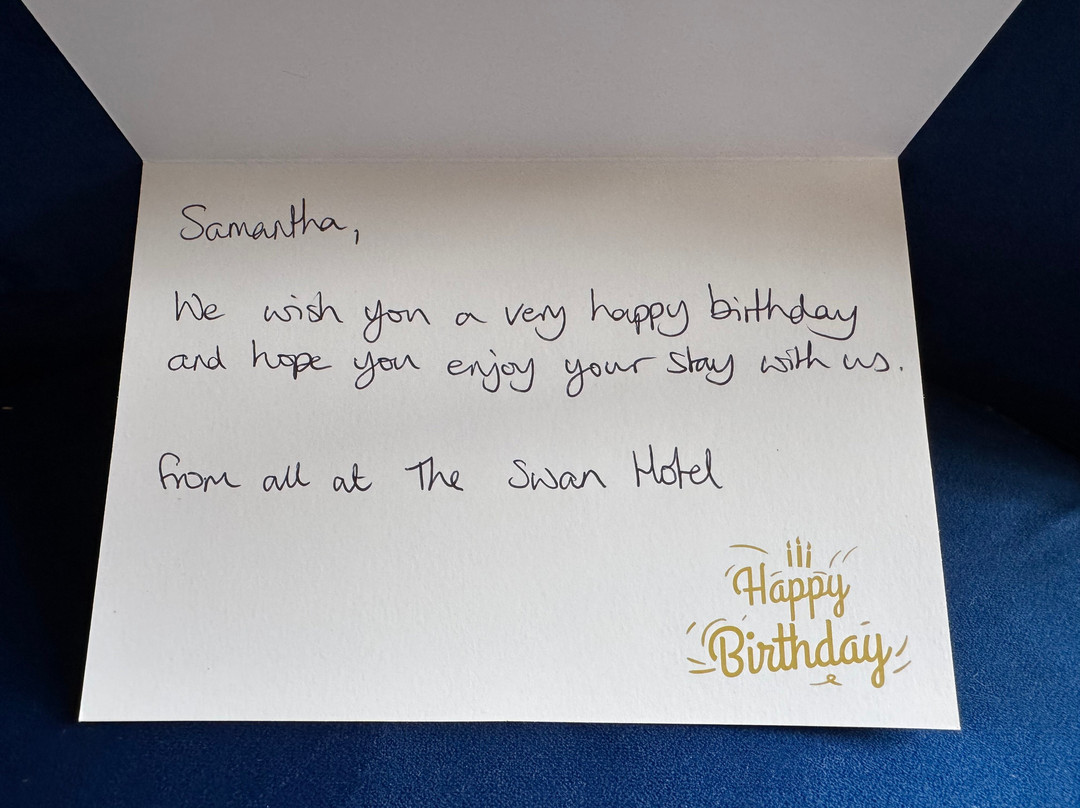 Samantha,
We wish you a very happy birthday
and hope you enjoy your stay with us.
From all at The Swan Hotel
Happy
Birthday